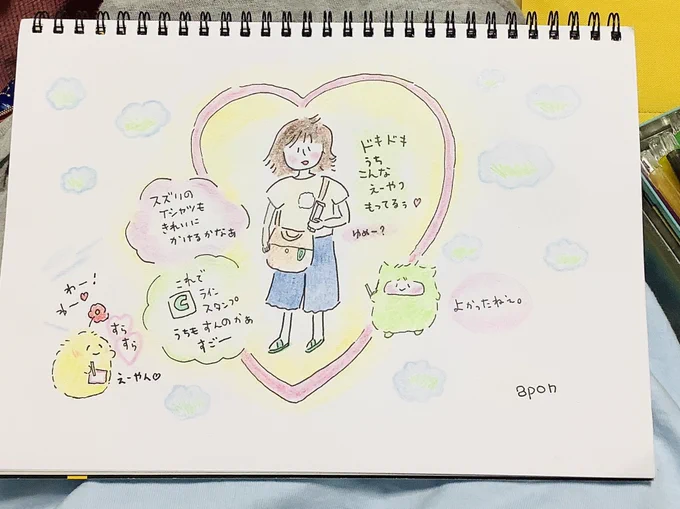 ドキドキ
うち
こんな
えーやつ
もってるぅ♡
ゆめー?
スズリの
Tシャツも
きれいに
かけるかなあ
これで
ライン
スタンプ
うちもすんのかぁ
すごー
わー!
わー♡
すら
すら
えーやん♡
よかったねぇ。
apon